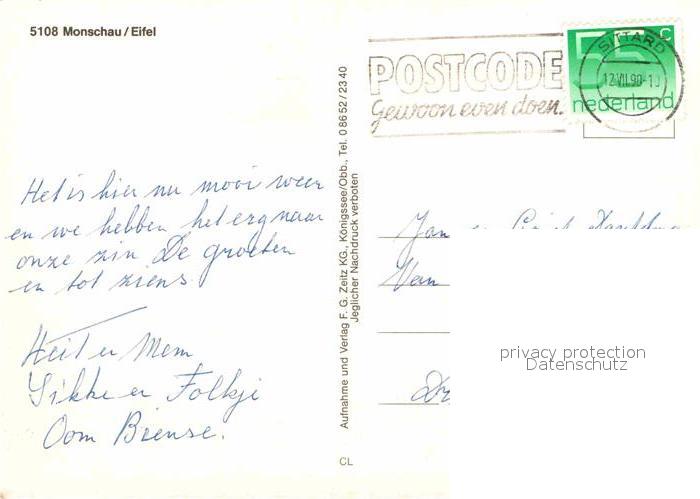 5108 Monschau / Eifel
POSTCODE
Gewoon even doen.
55 c
nederland
SITTARD
12.VII.90-1
Het is hier nu mooi weer
en we hebben het erg naar
onze zin De groeten
en tot ziens.
Heit en Mem
Sikke en Folkje
Oom Bense.
Aufnahme und Verlag F. G. Zeitz KG., Königssee/Obb., Tel. 0 86 52 / 23 40
Jeglicher Nachdruck verboten
CL
Jan
Van
privacy protection
Datenschutz